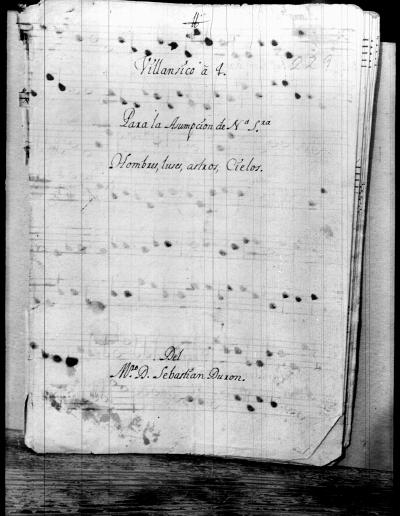 Villansico à 4.
229
Para la Asumpcion de Nª Sra
Hombres, luses, astros, Cielos.
Del
Mro. D. Sebastian Duron.